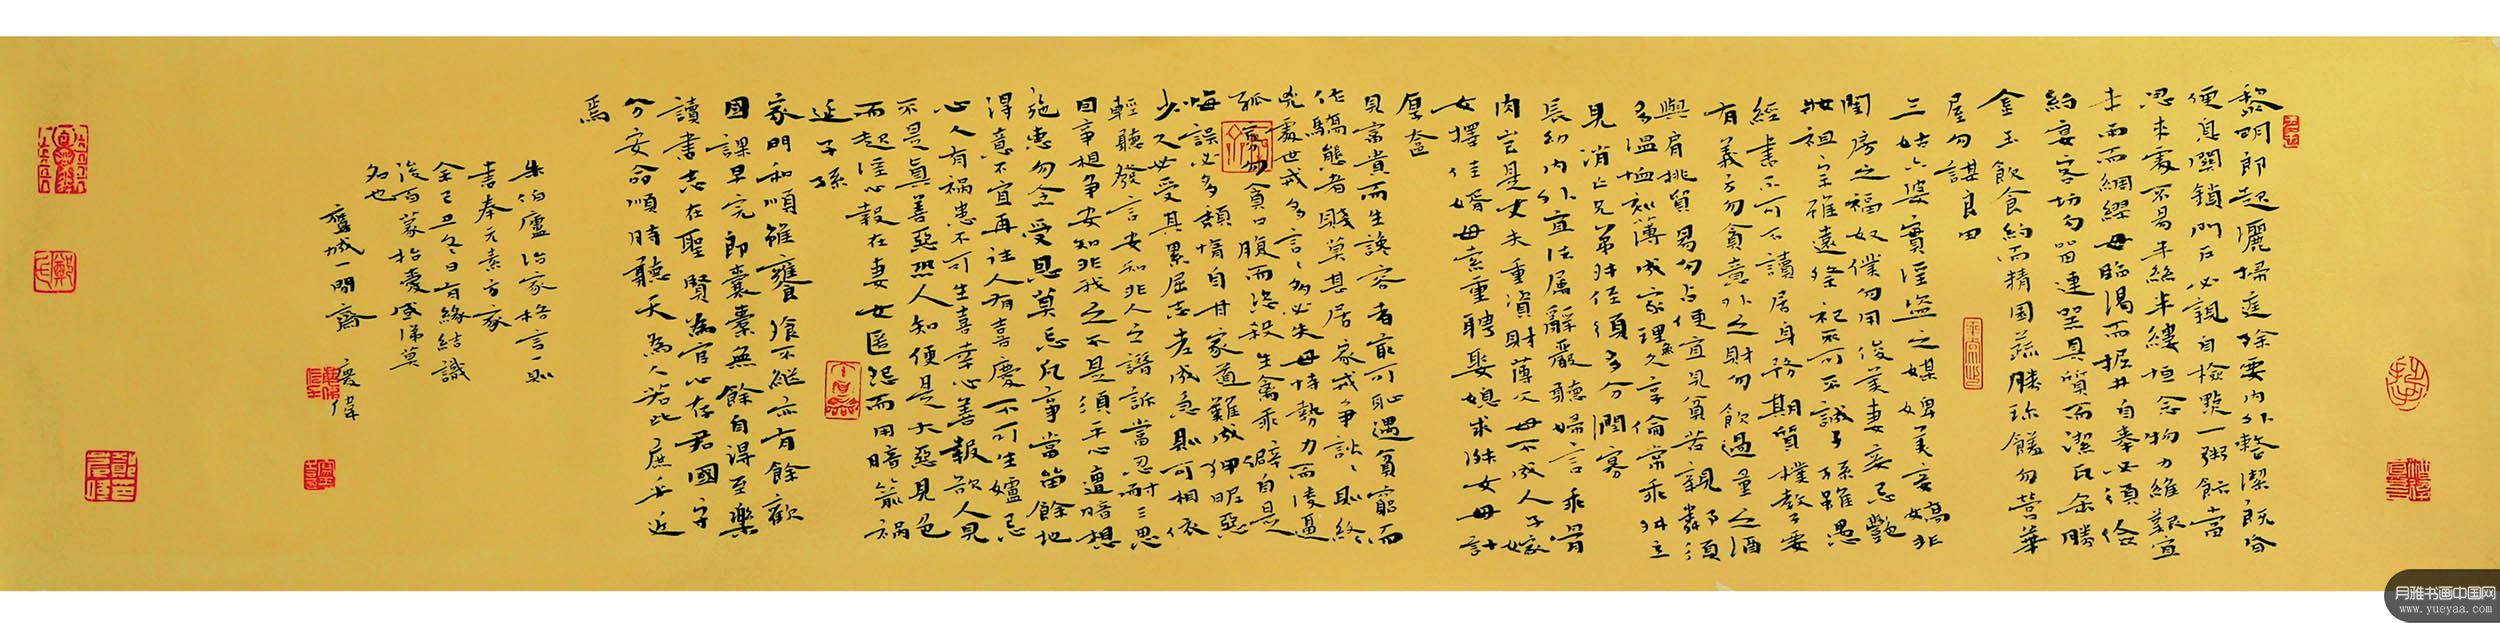 黎明即起灑掃庭除要內外整潔既昏
便息關鎖門戶必親自檢點一粥一飯當
思來處不易半絲半縷恒念物力維艱宜
未雨而綢繆毋臨渴而掘井自奉必須儉
約宴客切勿留連器具質而潔瓦缶勝
金玉飲食約而精園蔬勝珍饈勿營華
屋勿謀良田
三姑六婆實淫盜之媒婢美妾嬌非
閨房之福奴僕勿用俊美妻妾忌艷
妝祖宗雖遠祭祀不可不誠子孫雖愚
經書不可不讀居身務期質樸教子要
有義方勿貪意外之財勿飲過量之酒
與肩挑貿易勿占便宜見貧苦親鄰須
多溫恤刻薄成家理無久享倫常乖舛立
見消亡兄弟叔侄須多分潤寡
長幼內外宜法屬辭嚴聽婦言乖骨
肉豈是丈夫重資財薄父母不成人子嫁
女擇佳婿毋索重聘娶媳求淑女毋計
厚奩
見富貴而生諂容者最可恥遇貧窮而
作驕態者賤莫甚居家戒爭訟訟則終
兇處世戒多言言多必失毋恃勢力而凌逼
孤寡勿貪口腹而恣殺生禽乖僻自是
悔誤必多頹惰自甘家道難成狎昵惡
少久必受其累屈志老成急則可相依
輕聽發言安知非人之譖訴當忍耐三思
因事相爭安知非我之不是須平心遭暗想
施惠勿念受恩莫忘凡事當留餘地
得意不宜再往人有喜慶不可生妒忌
心人有禍患不可生喜幸心善報欲人見
不是真善惡恐人知便是大惡見色
而起淫心報在妻女匿怨而用暗箭禍
延子孫
家門和順雖饔飧不繼亦有餘歡
國課早完即囊橐無餘自得至樂
讀書志在聖賢為官心存君國守
分安命順時聽天為人若此庶乎近
焉
朱伯廬治家格言一則
書奉元素方家
余己丑冬日有緣結識
後百蒙抬愛感涕莫
名也
一明齋 慶偉
月雅书画中国网
www.yueyaa.com